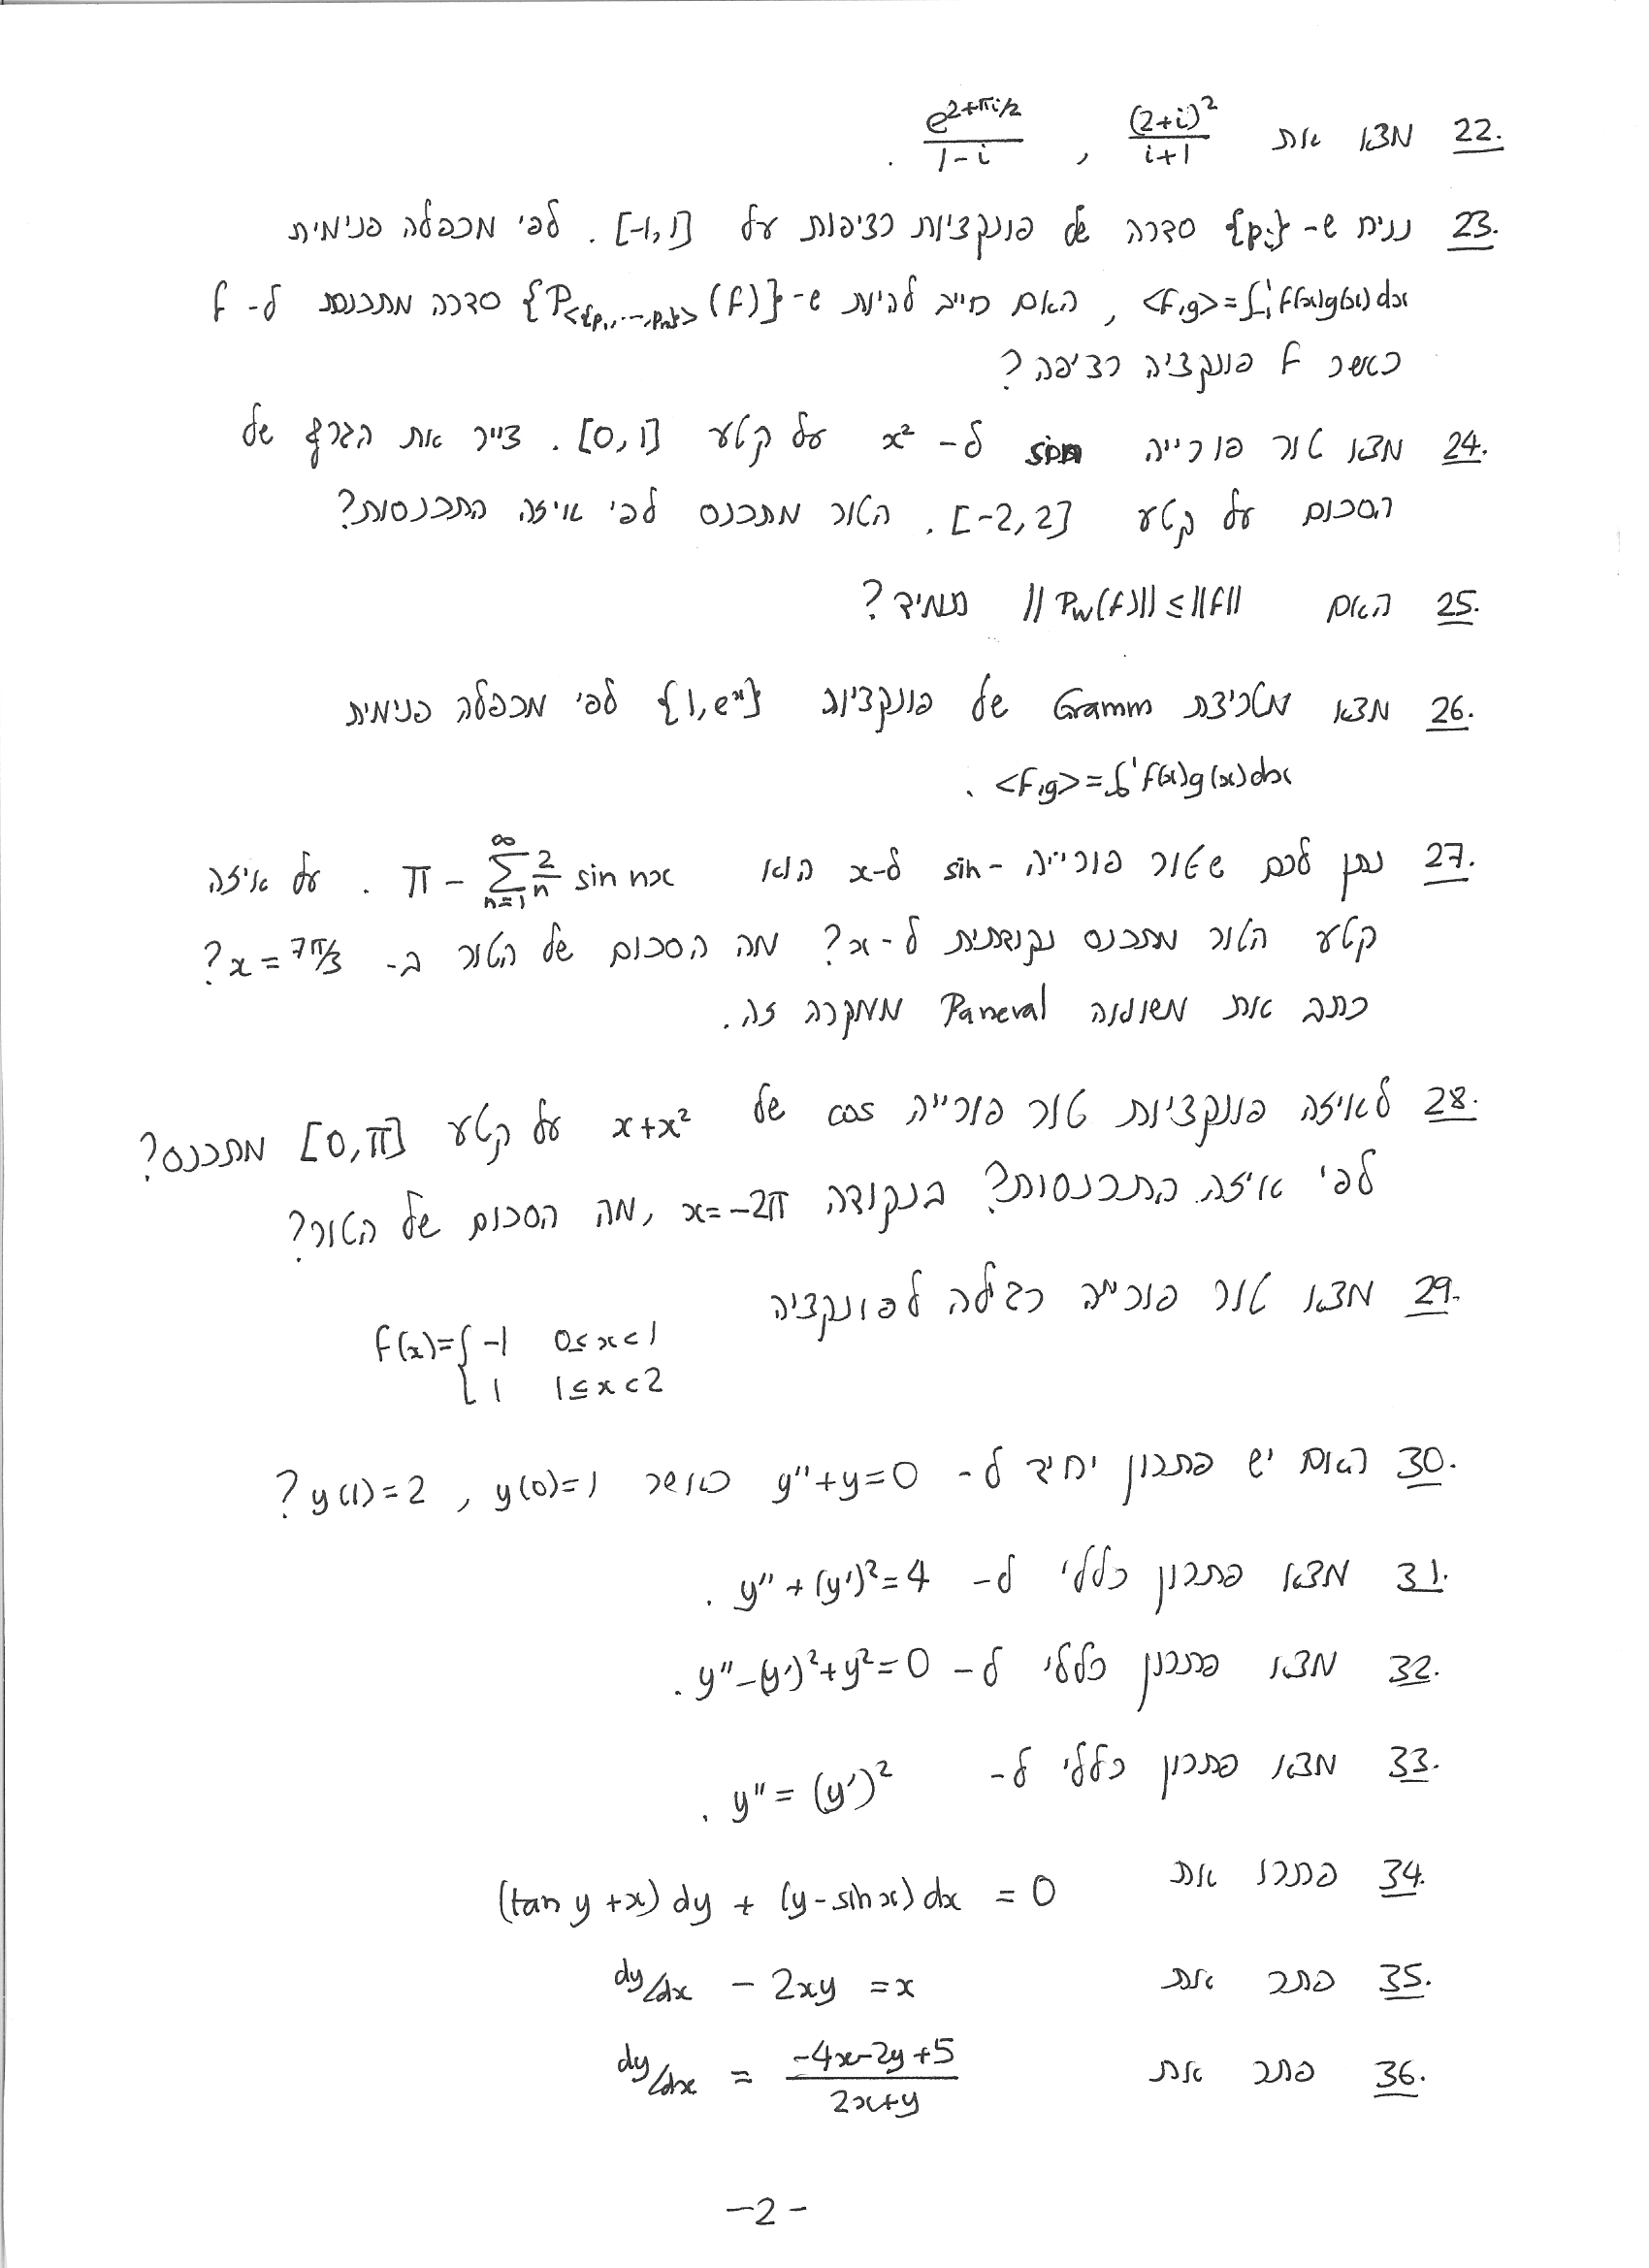 22. מצא את (2+i)²/(i+1) , e^(2+πi/2)/(1-i) .
23. נניח ש- {pᵢ} סדרה של פונקציות רציפות על [-1,1]. לפי מכפלה פנימית
<f,g>=∫₋₁¹f(x)g(x)dx , האם חייב להיות ש- {P<{p₁,...,pₙ}>(f)} סדרה מתכנסת ל- f
כאשר f פונקציה רציפה?
24. מצא טור פורייה sin ל- x² על קטע [0,1]. צייר את הגרף של
הסכום על קטע [-2,2]. הטור מתכנס לפי איזה התכנסות?
25. האם ||P_W(f)|| ≤ ||f|| תמיד?
26. מצא מטריצת Gramm של פונקציות {1,eˣ} לפי מכפלה פנימית
<f,g>=∫₀¹f(x)g(x)dx .
27. נתן לכם שטור פורייה -sin ל-x הוא π - Σ_{n=1}^∞ 2/n sin nx . על איזה
קטע הטור מתכנס נקודתית ל-x? מה הסכום של הטור ב- x=7π/3?
כתב את משוואה Parseval ממקרה זה.
28. לאיזה פונקציות טור פורייה cos של x+x² על קטע [0,π] מתכנס?
לפי איזה התכנסות? בנקודה x=-2π, מה הסכום של הטור?
29. מצא טור פורייה רגילה לפונקציה
f(x)={ -1 0≤x<1
1 1≤x<2
30. האם יש פתרון יחיד ל- y''+y=0 כאשר y(0)=1 , y(1)=2 ?
31. מצא פתרון כללי ל- y''+(y')²=4 .
32. מצא פתרון כללי ל- y''-(y')²+y²=0 .
33. מצא פתרון כללי ל- y''=(y')² .
34. פתרו את (tan y +x) dy + (y-sin x) dx = 0
35. פתר את dy/dx - 2xy = x
36. פתר את dy/dx = (-4x-2y+5)/(2x+y)
-2-